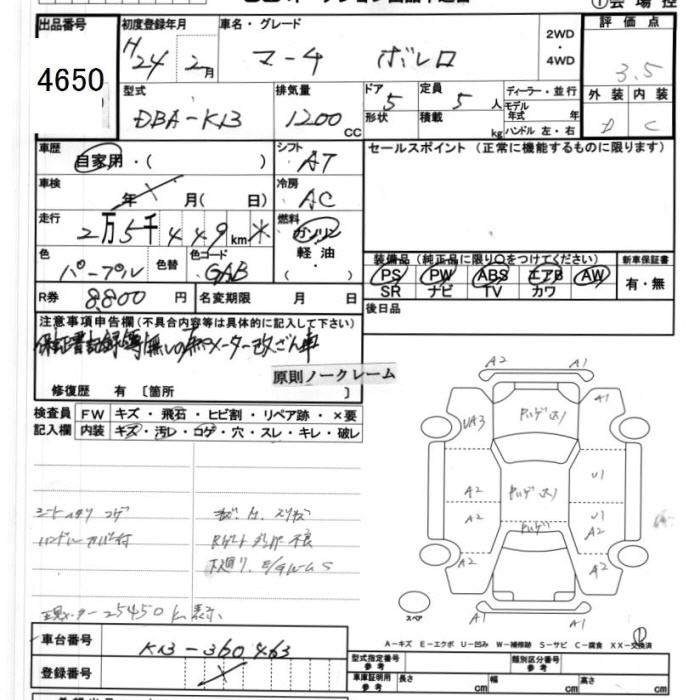 出品番号 初度登録年月 車名・グレード 2WD ・ 4WD 評価点
4650 H24 2月 マーチ ボレロ 3.5
型式 排気量 ドア 定員 ディーラー・並行 外装 内装
DBA-K13 1200 CC 5 5 人 モデル年式 年 D C
形状 積載 kg ハンドル 左・右
車歴 自家用・( ) シフト AT セールスポイント (正常に機能するものに限ります)
車検 年 月( 日) 冷房 AC
走行 2万5千449km* 燃料 ガソリン 軽油 ( ・ )
色 パープル 色替 色コード GAB 装備品(純正品に限り○をつけてください) 新車保証書
PS PW ABS エアB AW 有・無
R券 8,800 円 名変期限 月 日 SR ナビ TV カワ
後日品
注意事項申告欄(不具合内容等は具体的に記入して下さい)
保証書記録等無しの為メーター改ざん車
原則ノークレーム
修復歴 有 〔箇所 〕
検査員 FW キズ・飛石・ヒビ割・リペア跡・×要
記入欄 内装 キズ・汚レ・コゲ・穴・スレ・キレ・破レ
A2 A1
UA3 A1
A2 U1
A2 U1 A2
A2 A2
A1 A1
スペア
シートヘタリ コゲ
ハンドルカバー付
下廻り
現メーター25450km表示
A-キズ E-エクボ U-凹み W-補修跡 S-サビ C-腐食 XX-交換済
車台番号 K13-360463
登録番号
型式指定番号 参考 類別区分番号 参考
車庫証明用 参考 長さ cm 幅 cm 高さ cm